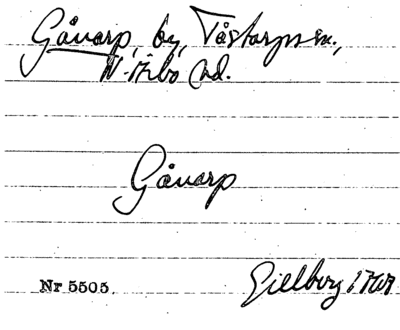 Gåvarp, by, Tåstarps sn.,
N. Åsbo hd.
Gåvarp
Nr 5505. Gillberg 1767